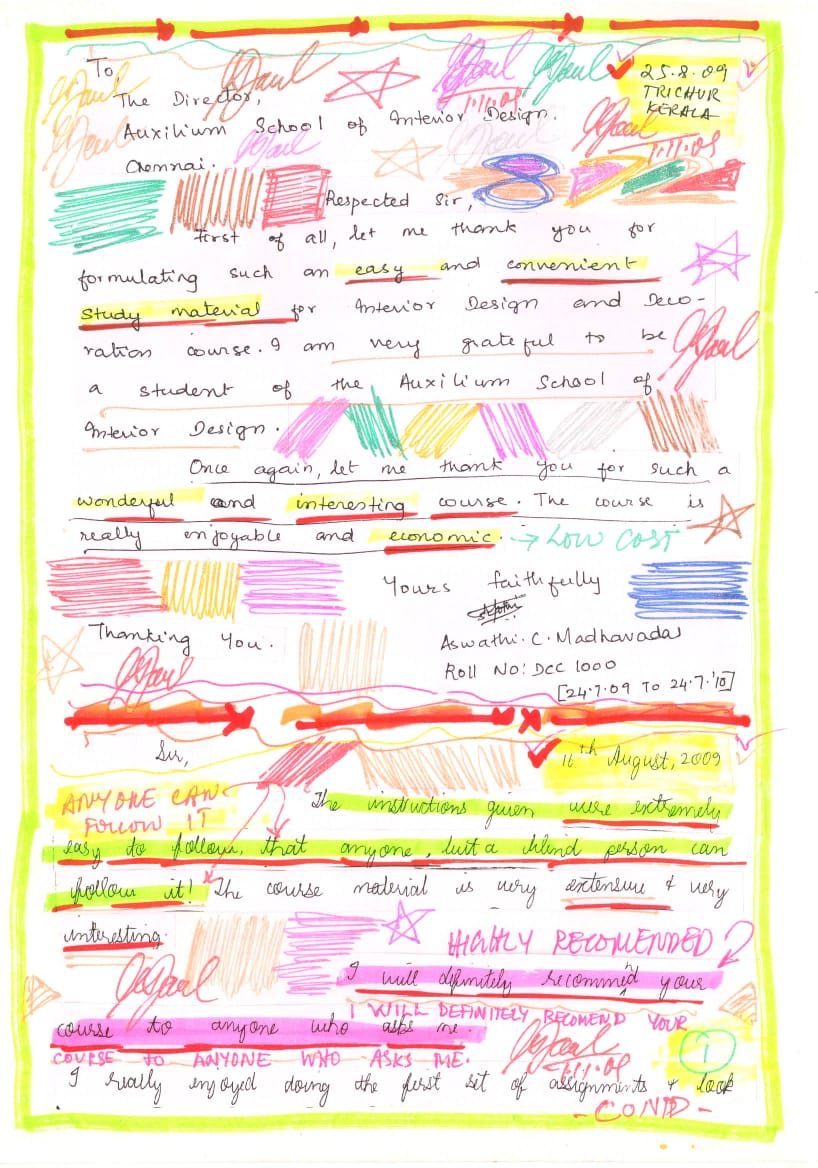 To,
The Director,
Auxilium School of Interior Design.
Chennai.
25.8.09
TRICHUR
KERALA
1.11.09
1.11.09
Respected Sir,
First of all, let me thank you for
formulating such an easy and convenient
study material for Interior Design and Deco-
ration course. I am very grateful to be
a student of the Auxilium School of
Interior Design.
Once again, let me thank you for such a
wonderful and interesting course. The course is
really enjoyable and economic. → LOW COST
Yours faithfully
Thanking You.
Aswathi. C. Madhavadas
Roll No: DCC 1000
[24.7.09 TO 24.7.'10]
Sir,
16th August, 2009
ANYONE CAN
FOLLOW IT
The instructions given were extremely
easy to follow, that anyone, but a blind person can
follow it! The course material is very extensive & very
interesting.
HIGHLY RECOMENDED
I will definitely recommend your
I WILL DEFINITELY RECOMEND YOUR
course to anyone who asks me.
COURSE TO ANYONE WHO ASKS ME.
1.11.09
1
I really enjoyed doing the first set of assignments & look
- CONTD -